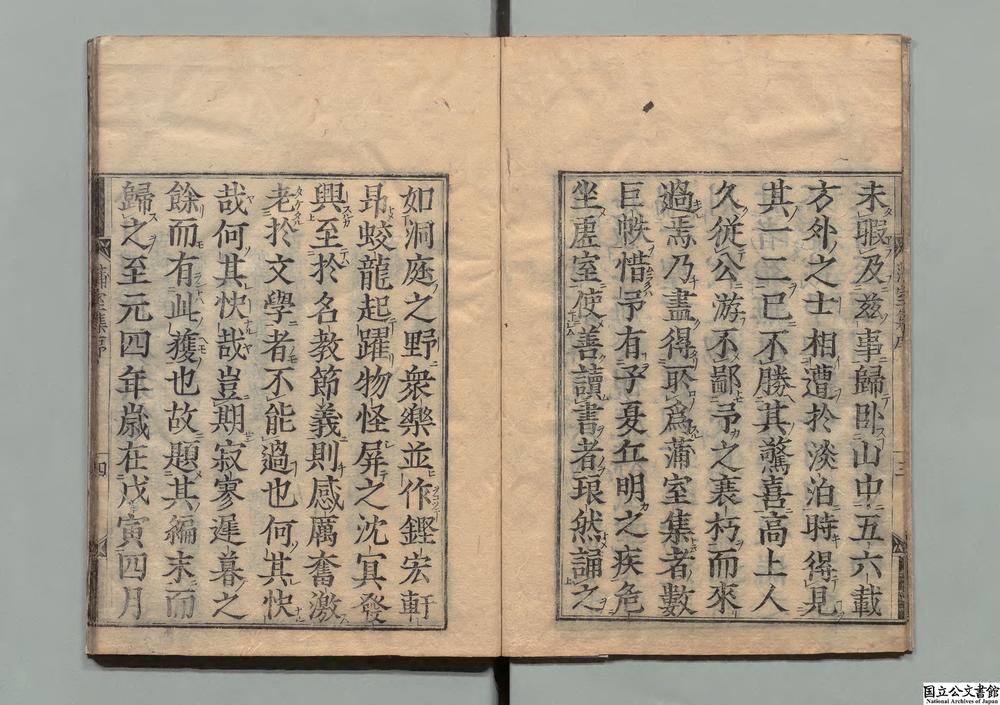 未暇及玆事歸卧山中五六載
方外之士相遭於淡泊時得見
其一二已不勝其驚喜高上人
久從公游不鄙予之衰朽而來
過焉乃盡得所爲蒲室集者數
巨帙惜予有子夏丘明之疾危
坐虛室使善讀書者琅然誦之
如洞庭之野衆樂並作鏗宏軒
昻蛟龍起躍物怪屏之沈冥發
興至於名教節義則感厲奮激
老於文學者不能過也何其快
哉何其快哉豈期寂寥遲暮之
餘而有此獲也故題其編末而
歸之至元四年歲在戊寅四月
蒲室集序
三
蒲室集序
四
国立公文書館
National Archives of Japan